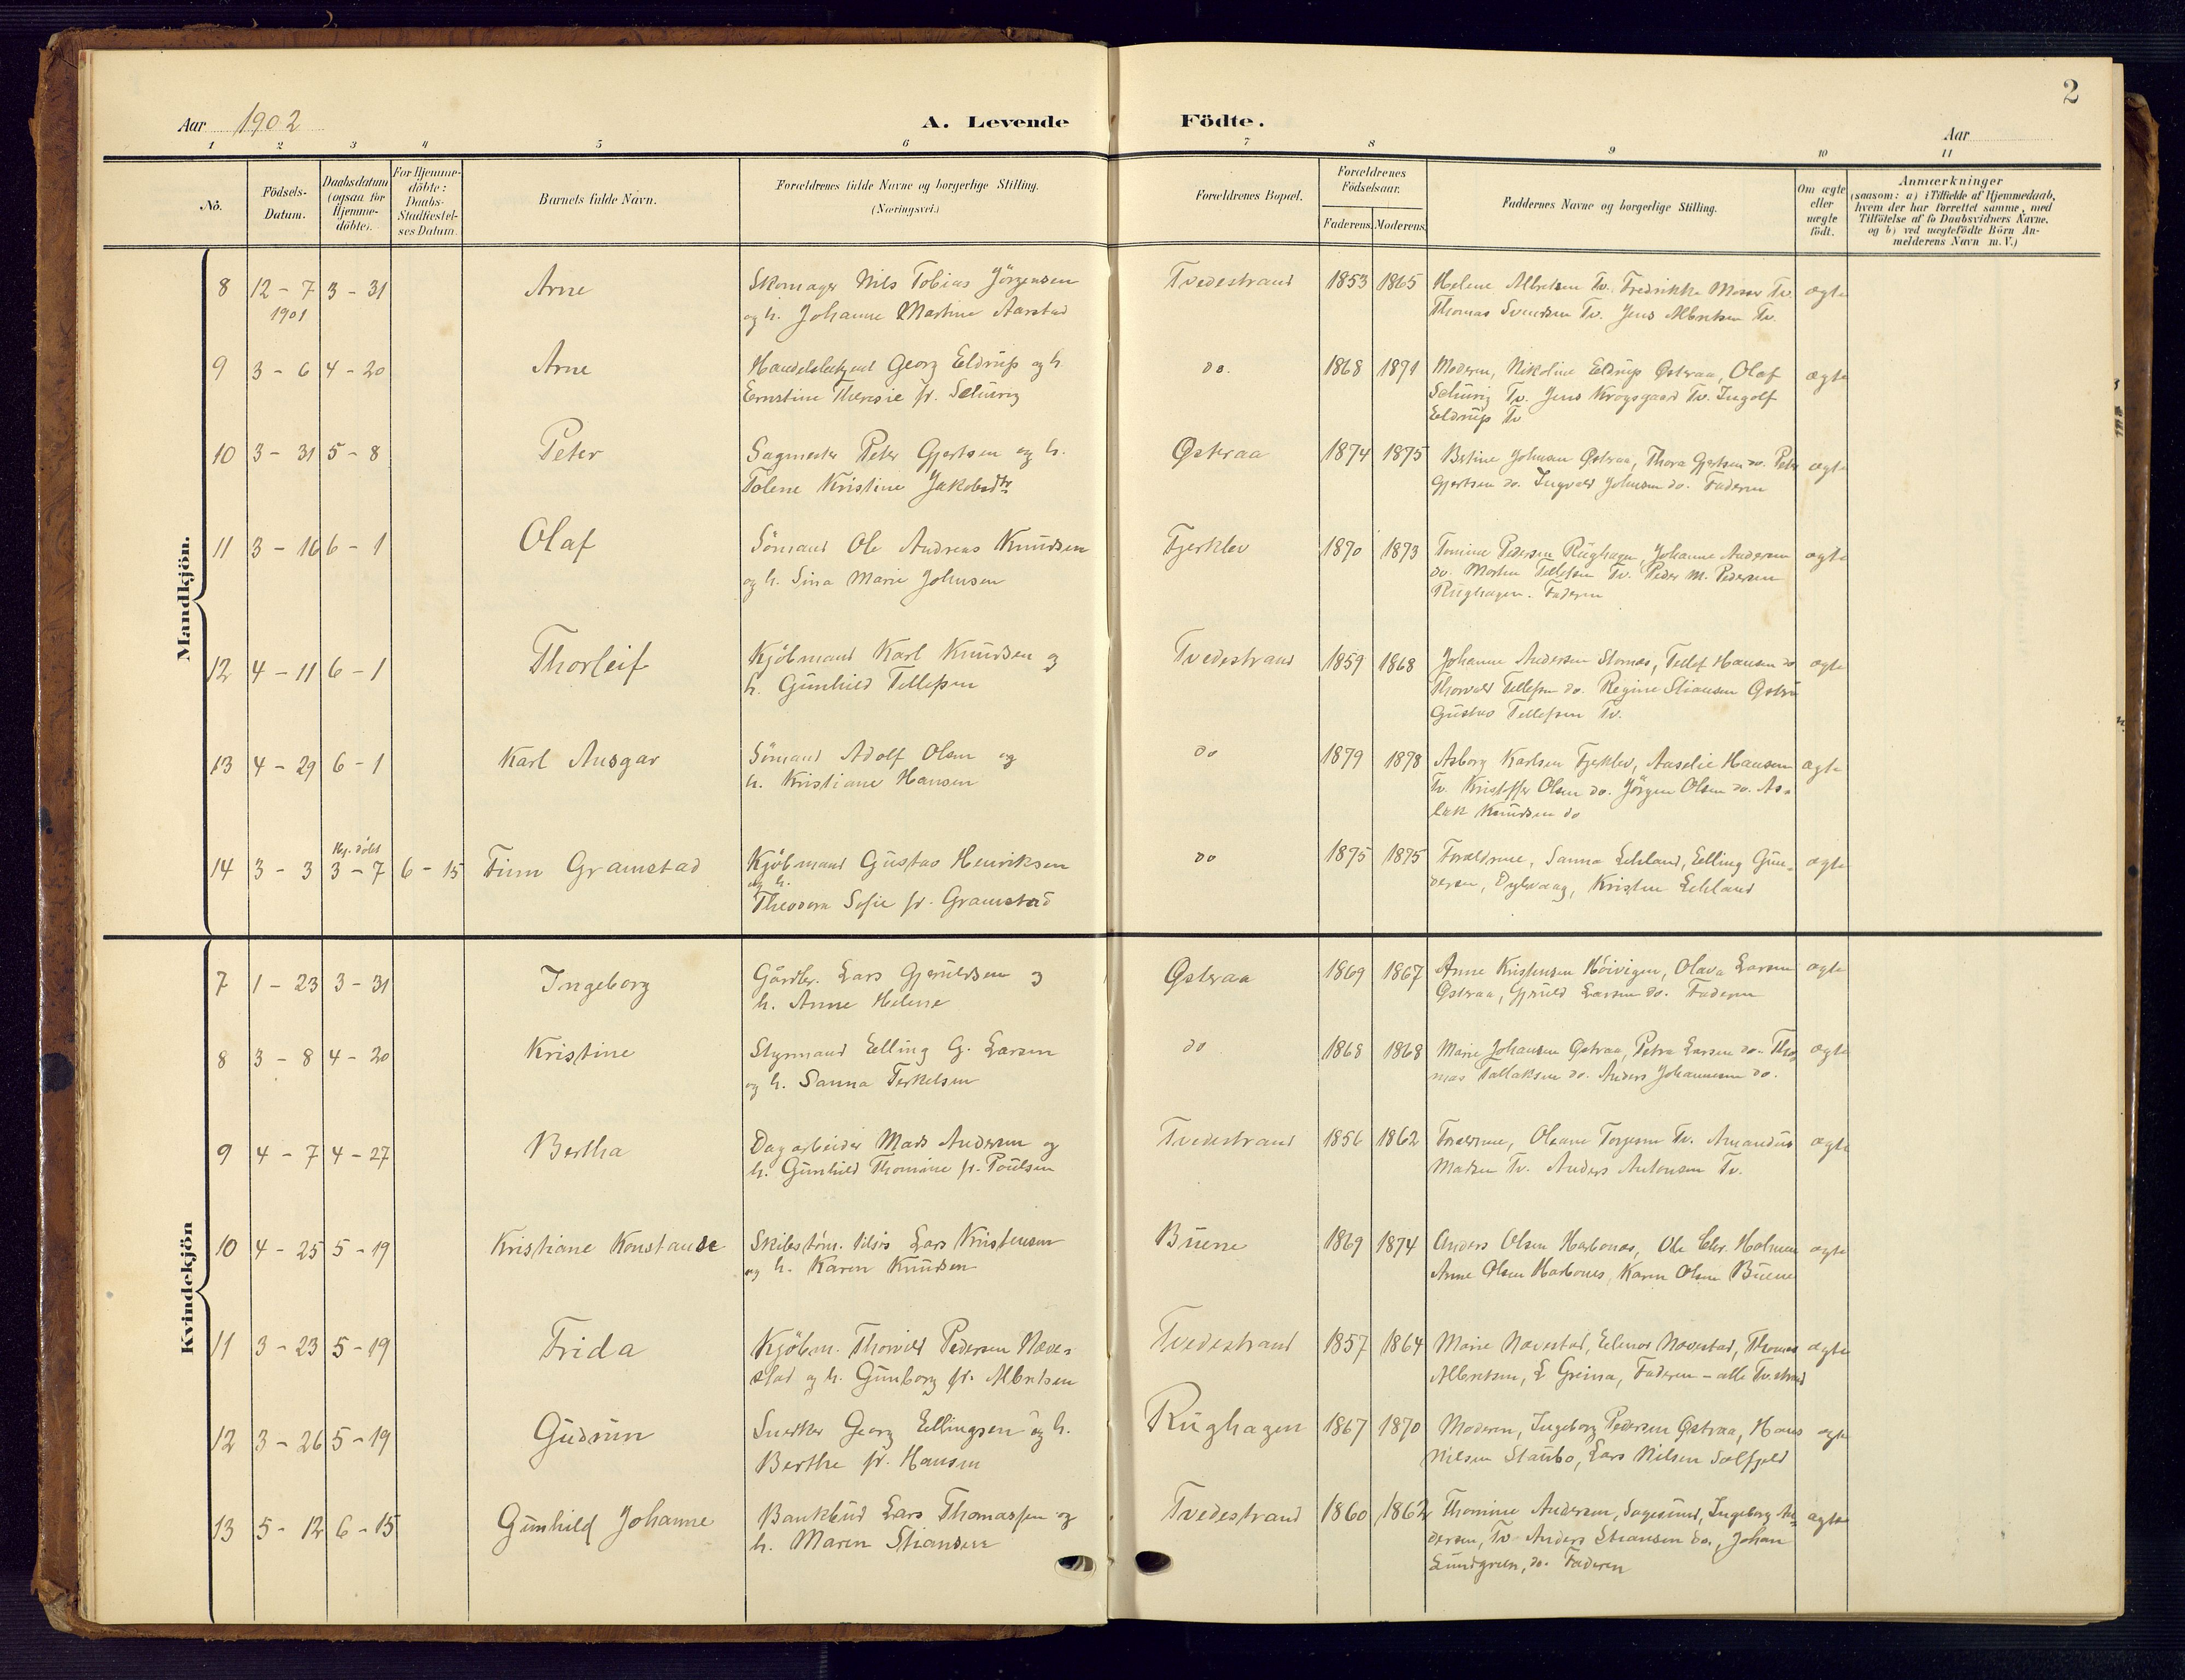 2
Aar 1902
A. Levende Födte.
Aar
1 2 3 4 5 6 7 8 9 10 11
Nö.
Födsels-
Datum.
Daabsdatum
(ogsaa for
Hjemme-
döbte).
For Hjemme-
döbte:
Daabs-
Stadfæstel-
ses Datum.
Barnets fulde Navn.
Forældrenes fulde Navne og borgerlige Stilling.
(Næringsvei.)
Forældrenes Bopæl.
Forældrenes
Födselsaar.
Faderens. Moderens.
Faddernes Navne og borgerlige Stilling.
Om ægte
eller
uægte
födt.
Anmærkninger
(saasom: a) i Tilfælde af Hjemmedaab,
hvem der har forrettet samme, med
Tilföielse af to Daabsvidners Navne,
og b) ved uægtefödte Börn An-
melderens Navn m.V.)
Mandkjön.
8 12 - 7 3 - 31 Arne Skomager Nils Tobias Jörgensen Tvedestrand 1853 1865 Helene Albretsen Tv. Fredrikke Moser Tv. ægte
1901 og h. Johanne Martine Aarstad Thomas Svendsen Tv. Jens Albretsen Tv.
9 3 - 6 4 - 20 Arne Georg Eldrup og h. do. 1868 1871 Moderen, Nikoline Eldrup Østeraa, Olaf ægte
Ernstine Theresie f. Schürig Schürig Tv. Jens Krogsgaard Tv. Ingolf
Eldrup Tv
10 3 - 31 5 - 8 Peter Sagmester Peter Gjertsen og h. Østeraa 1874 1875 Johnsen Østeraa, Thora Gjertsen do. Peter ægte
Tolene Kristine Jakobsdtr Gjertsen do. Ingvald Johnsen do. Faderen
11 3 - 16 6 - 1 Olaf Sömand Ole Andreas Knudsen Fjerklev 1870 1873 Tomine Pedersen Rüghagen, Johanne Andersen ægte
og h. Sina Marie Johnsen do. Morten Tellefsen Tv. Peder M. Pedersen
Rüghagen. Faderen
12 4 - 11 6 - 1 Thorleif Kjöbmand Karl Knudsen og Tvedestrand 1859 1868 Johanne Andersen Stornes, Tellef Hansen do ægte
h. Günhild Tellefsen Thorvald Tellefsen do. Regine Stiansen Østeraa
Güstav Tellefsen Tv.
13 4 - 29 6 - 1 Karl Ansgar Sömand Adolf Olsen og do 1879 1878 Asborg Karlsen Fjerklev, Hansen ægte
h. Kristiane Hansen Tv. Kristoffer Olsen do. Jörgen Olsen do. As-
lak Knudsen do
Hj. döbt
14 3 - 3 3 - 7 6 - 15 Finn Gramstad Kjöbmand Güstav Henriksen do 1875 1875 Forældrene, Sanna Lehland, Elling Gun- ægte
og h. dersen, Dybvaag, Kristen Lehland
Theodora Sofie f. Gramstad
Kvindekjön
7 1 - 23 3 - 31 Ingeborg Gårdbr. Lars Gjeruldsen og Østeraa 1869 1867 Anne Kristensen Höivigen, Olava Larsen ægte
h. Anne Helene Østeraa, Gjeruld Larsen do. Faderen
8 3 - 8 4 - 20 Kristine Styrmand Elling G. Larsen do 1868 1868 Marie Johansen Østeraa, Petra Larsen do. Tho- ægte
og h. Sanna Terkelsen mas Tallaksen do. Anders Johannesen do.
9 4 - 7 4 - 27 Bertha Dagarbeider Mads Andersen og Tvedestrand 1856 1862 Forældrene, Oleane Torgersen Tv. Amandüs ægte
h. Günhild Thomine f. Poülsen Madsen Tv. Anders Antonsen Tv.
10 4 - 25 5 - 19 Kristiane Konstanse Skibstöm. Lars Kristensen Büene 1869 1874 Anders Olsen Harbones, Ole Chr. Holmen ægte
og h. Karen Knüdsen Anne Olsen Harbones, Karen Olsen Büene
11 3 - 23 5 - 19 Frida Kjöbm. Thorvald Pedersen Næve- Tvedestrand 1857 1864 Marie Nævestad, Elenor Nævestad, Thomas ægte
stad og h. Günborg f. Albretsen Albretsen, L Greina, Faderen - alle Tv.strand
12 3 - 26 5 - 19 Güdrün Snedker Georg Ellingsen og h. Rüghagen 1867 1870 Moderen, Ingeborg Pedersen Østeraa, Hans ægte
Berthe f. Hansen Nilsen Staübo, Lars Nilsen Solfjeld
13 5 - 12 6 - 15 Günhild Johanne Bankbüd Lars Thomassen og Tvedestrand 1860 1862 Thomine Andersen, Sagesünd, Ingeborg An- ægte
h. Maren Stiansen dersen, Tv Anders Stiansen do., Johan
Lündgreen, do. Faderen